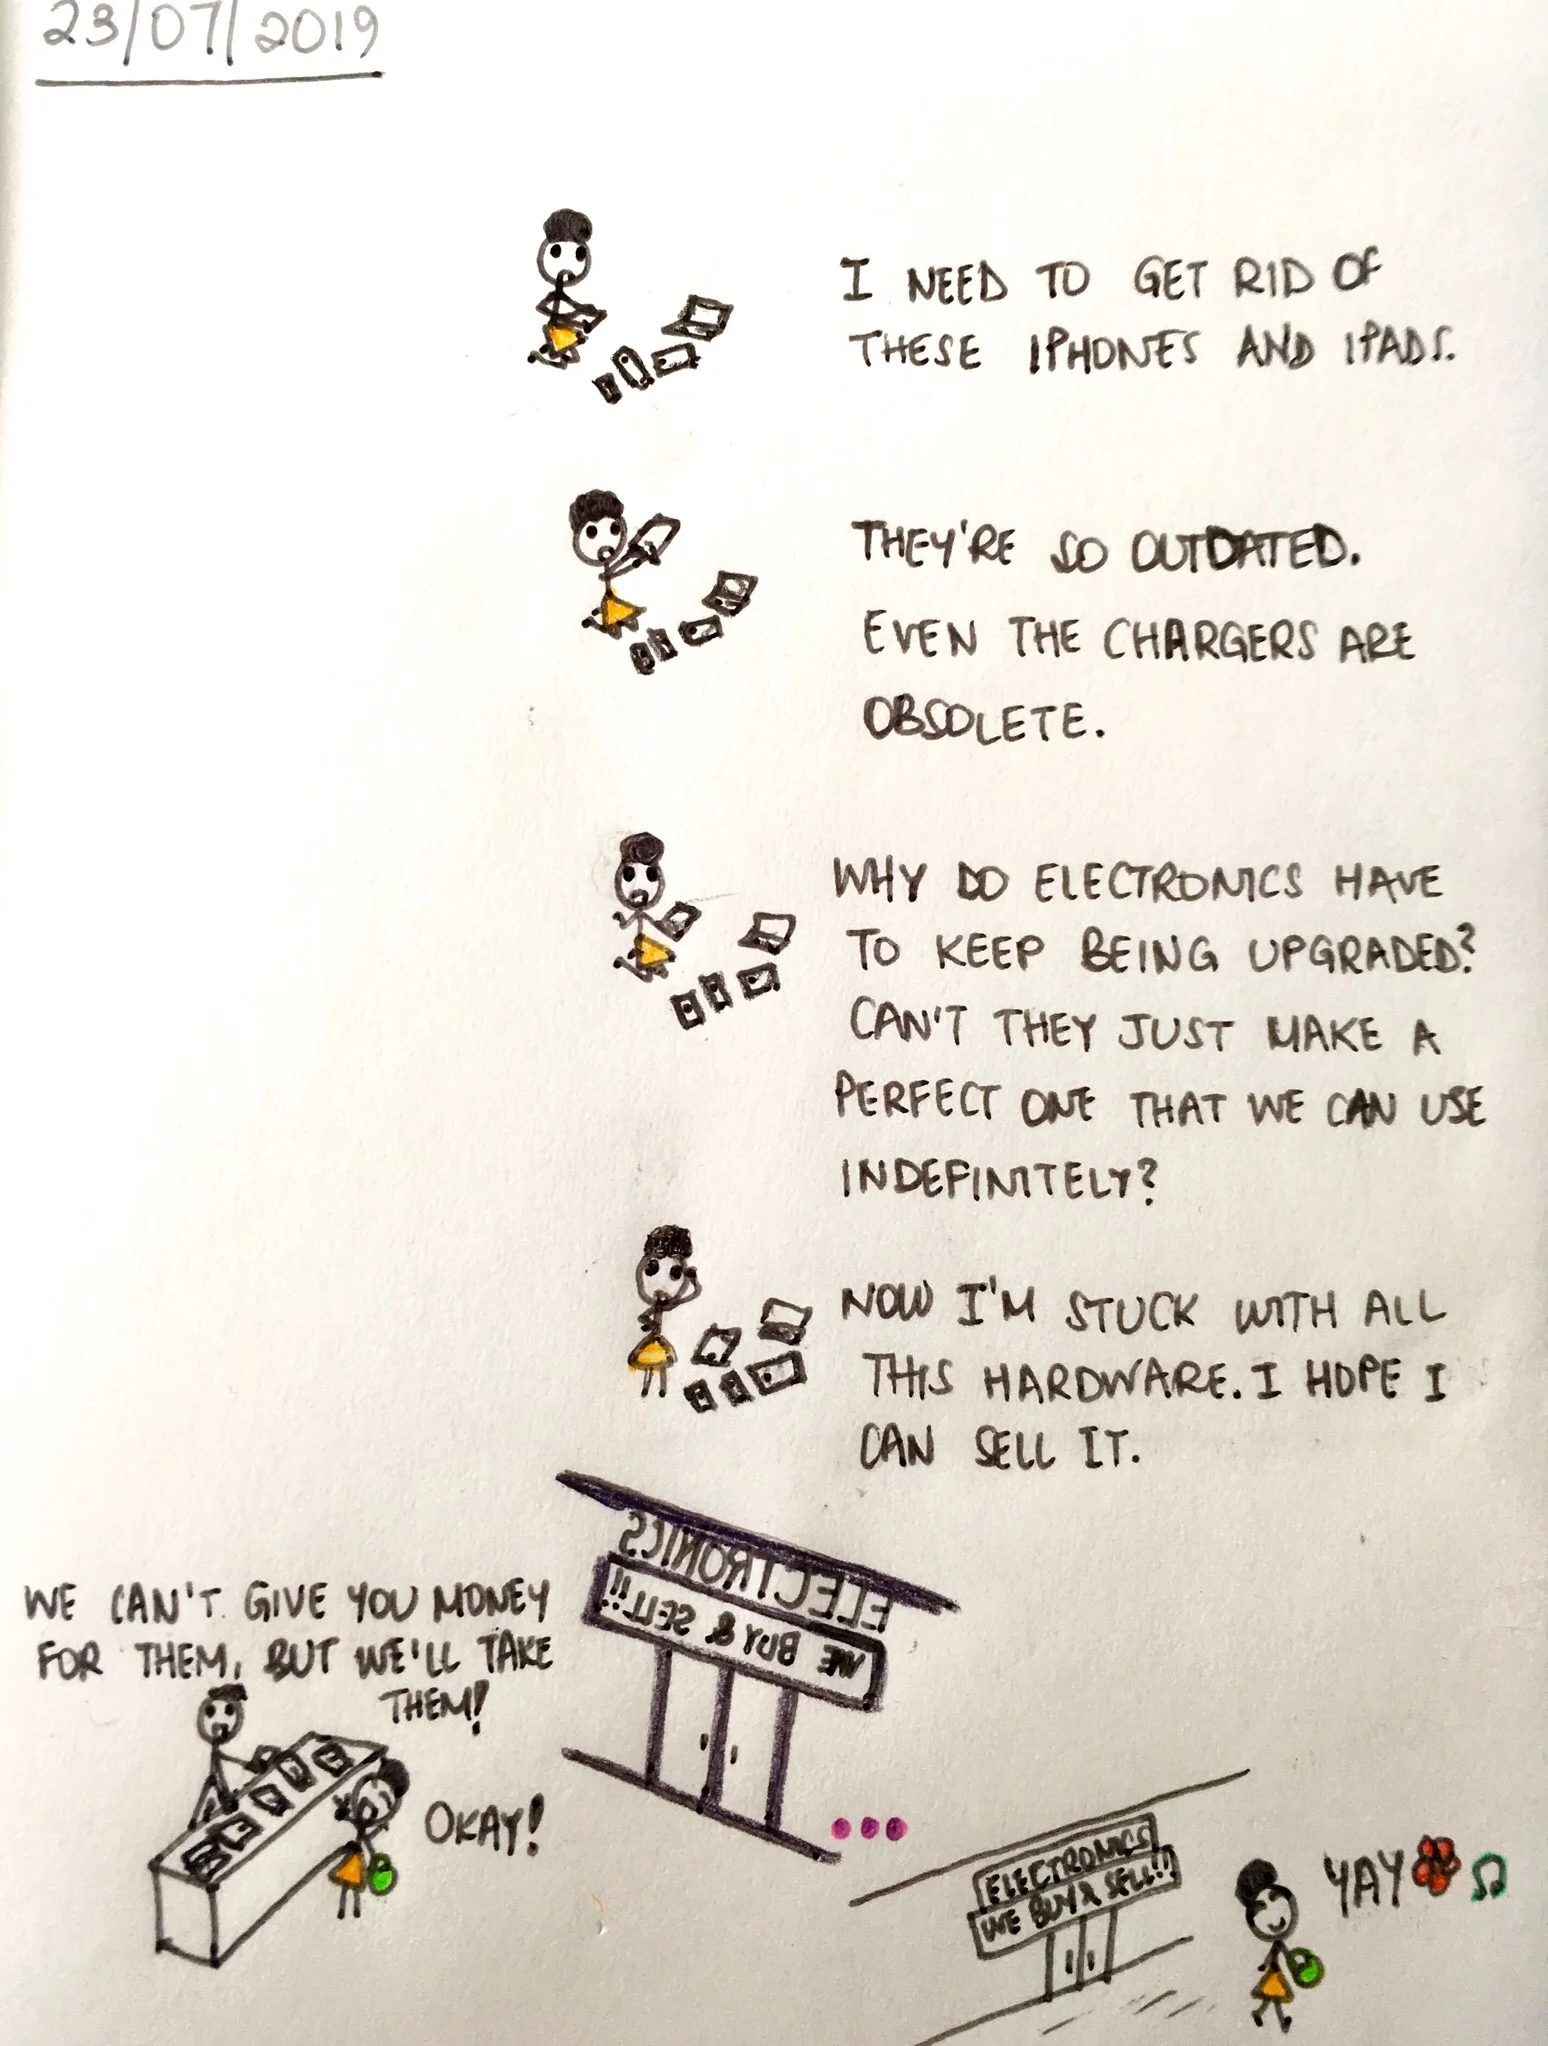 23/07/2019
I NEED TO GET RID OF
THESE IPHONES AND IPADS.
THEY'RE SO OUTDATED.
EVEN THE CHARGERS ARE
OBSOLETE.
WHY DO ELECTRONICS HAVE
TO KEEP BEING UPGRADED?
CAN'T THEY JUST MAKE A
PERFECT ONE THAT WE CAN USE
INDEFINITELY?
NOW I'M STUCK WITH ALL
THIS HARDWARE. I HOPE I
CAN SELL IT.
ELECTRONICS
WE BUY & SELL!!
WE CAN'T GIVE YOU MONEY
FOR THEM, BUT WE'LL TAKE
THEM!
OKAY!
ELECTRONICS
WE BUY & SELL!!
YAY